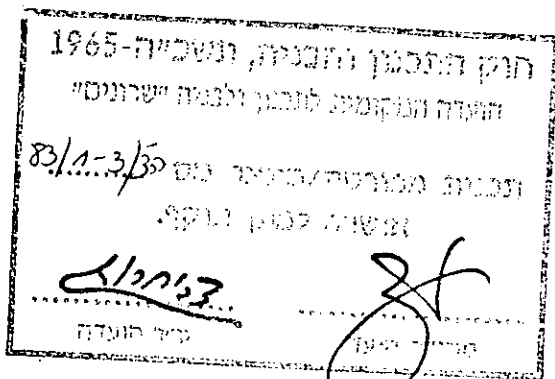 חוק התכנון והבניה, תשכ"ה-1965
הועדה המקומית לתכנון ולבניה "שרונים"
תכנית מפורטת/ מס 83/1-3/
אושרה למתן תוקף.
יו"ר הועדה